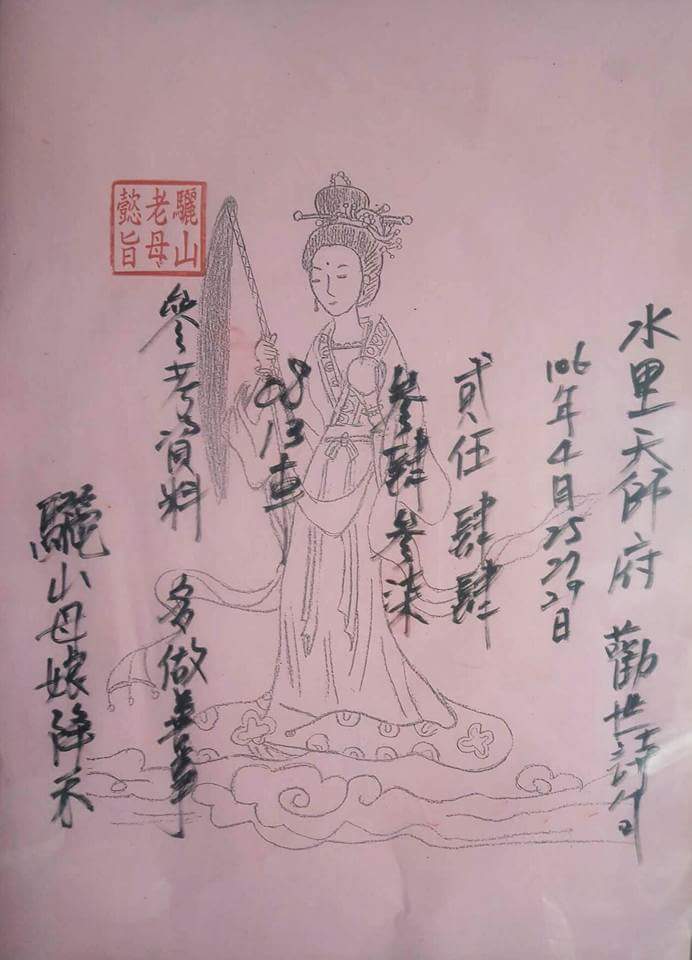 水里天師府 勸世詩
106年4月25 27 29日
貳伍 肆肆
參肆 參柒
08 13 車
參考資料 多做善事
驪山母娘降示
驪山老母懿旨